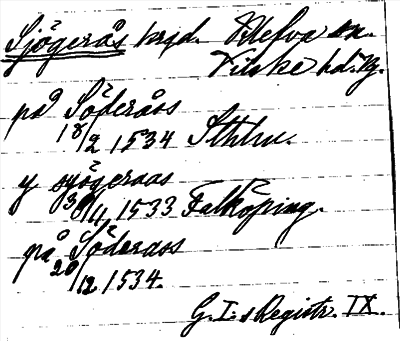 Sjögerås krjd. Blefva sn.
Vilske hd. Vg.
på Söderåos
18/2 1534 Sthlm.
y sjögeraas
30/4, 1533 Falköping.
på Söderaos
20/12 1534.
G. I:s Registr. IX.